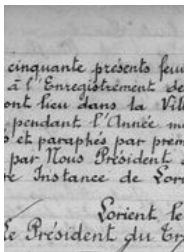 cinquante présents feu
à l'Enregistrement de
ont lieu dans la Vill
pendant l'Année m
et paraphés par prem
par Nous Président
re Instance de Lori
Lorient le
Le Président du Tr